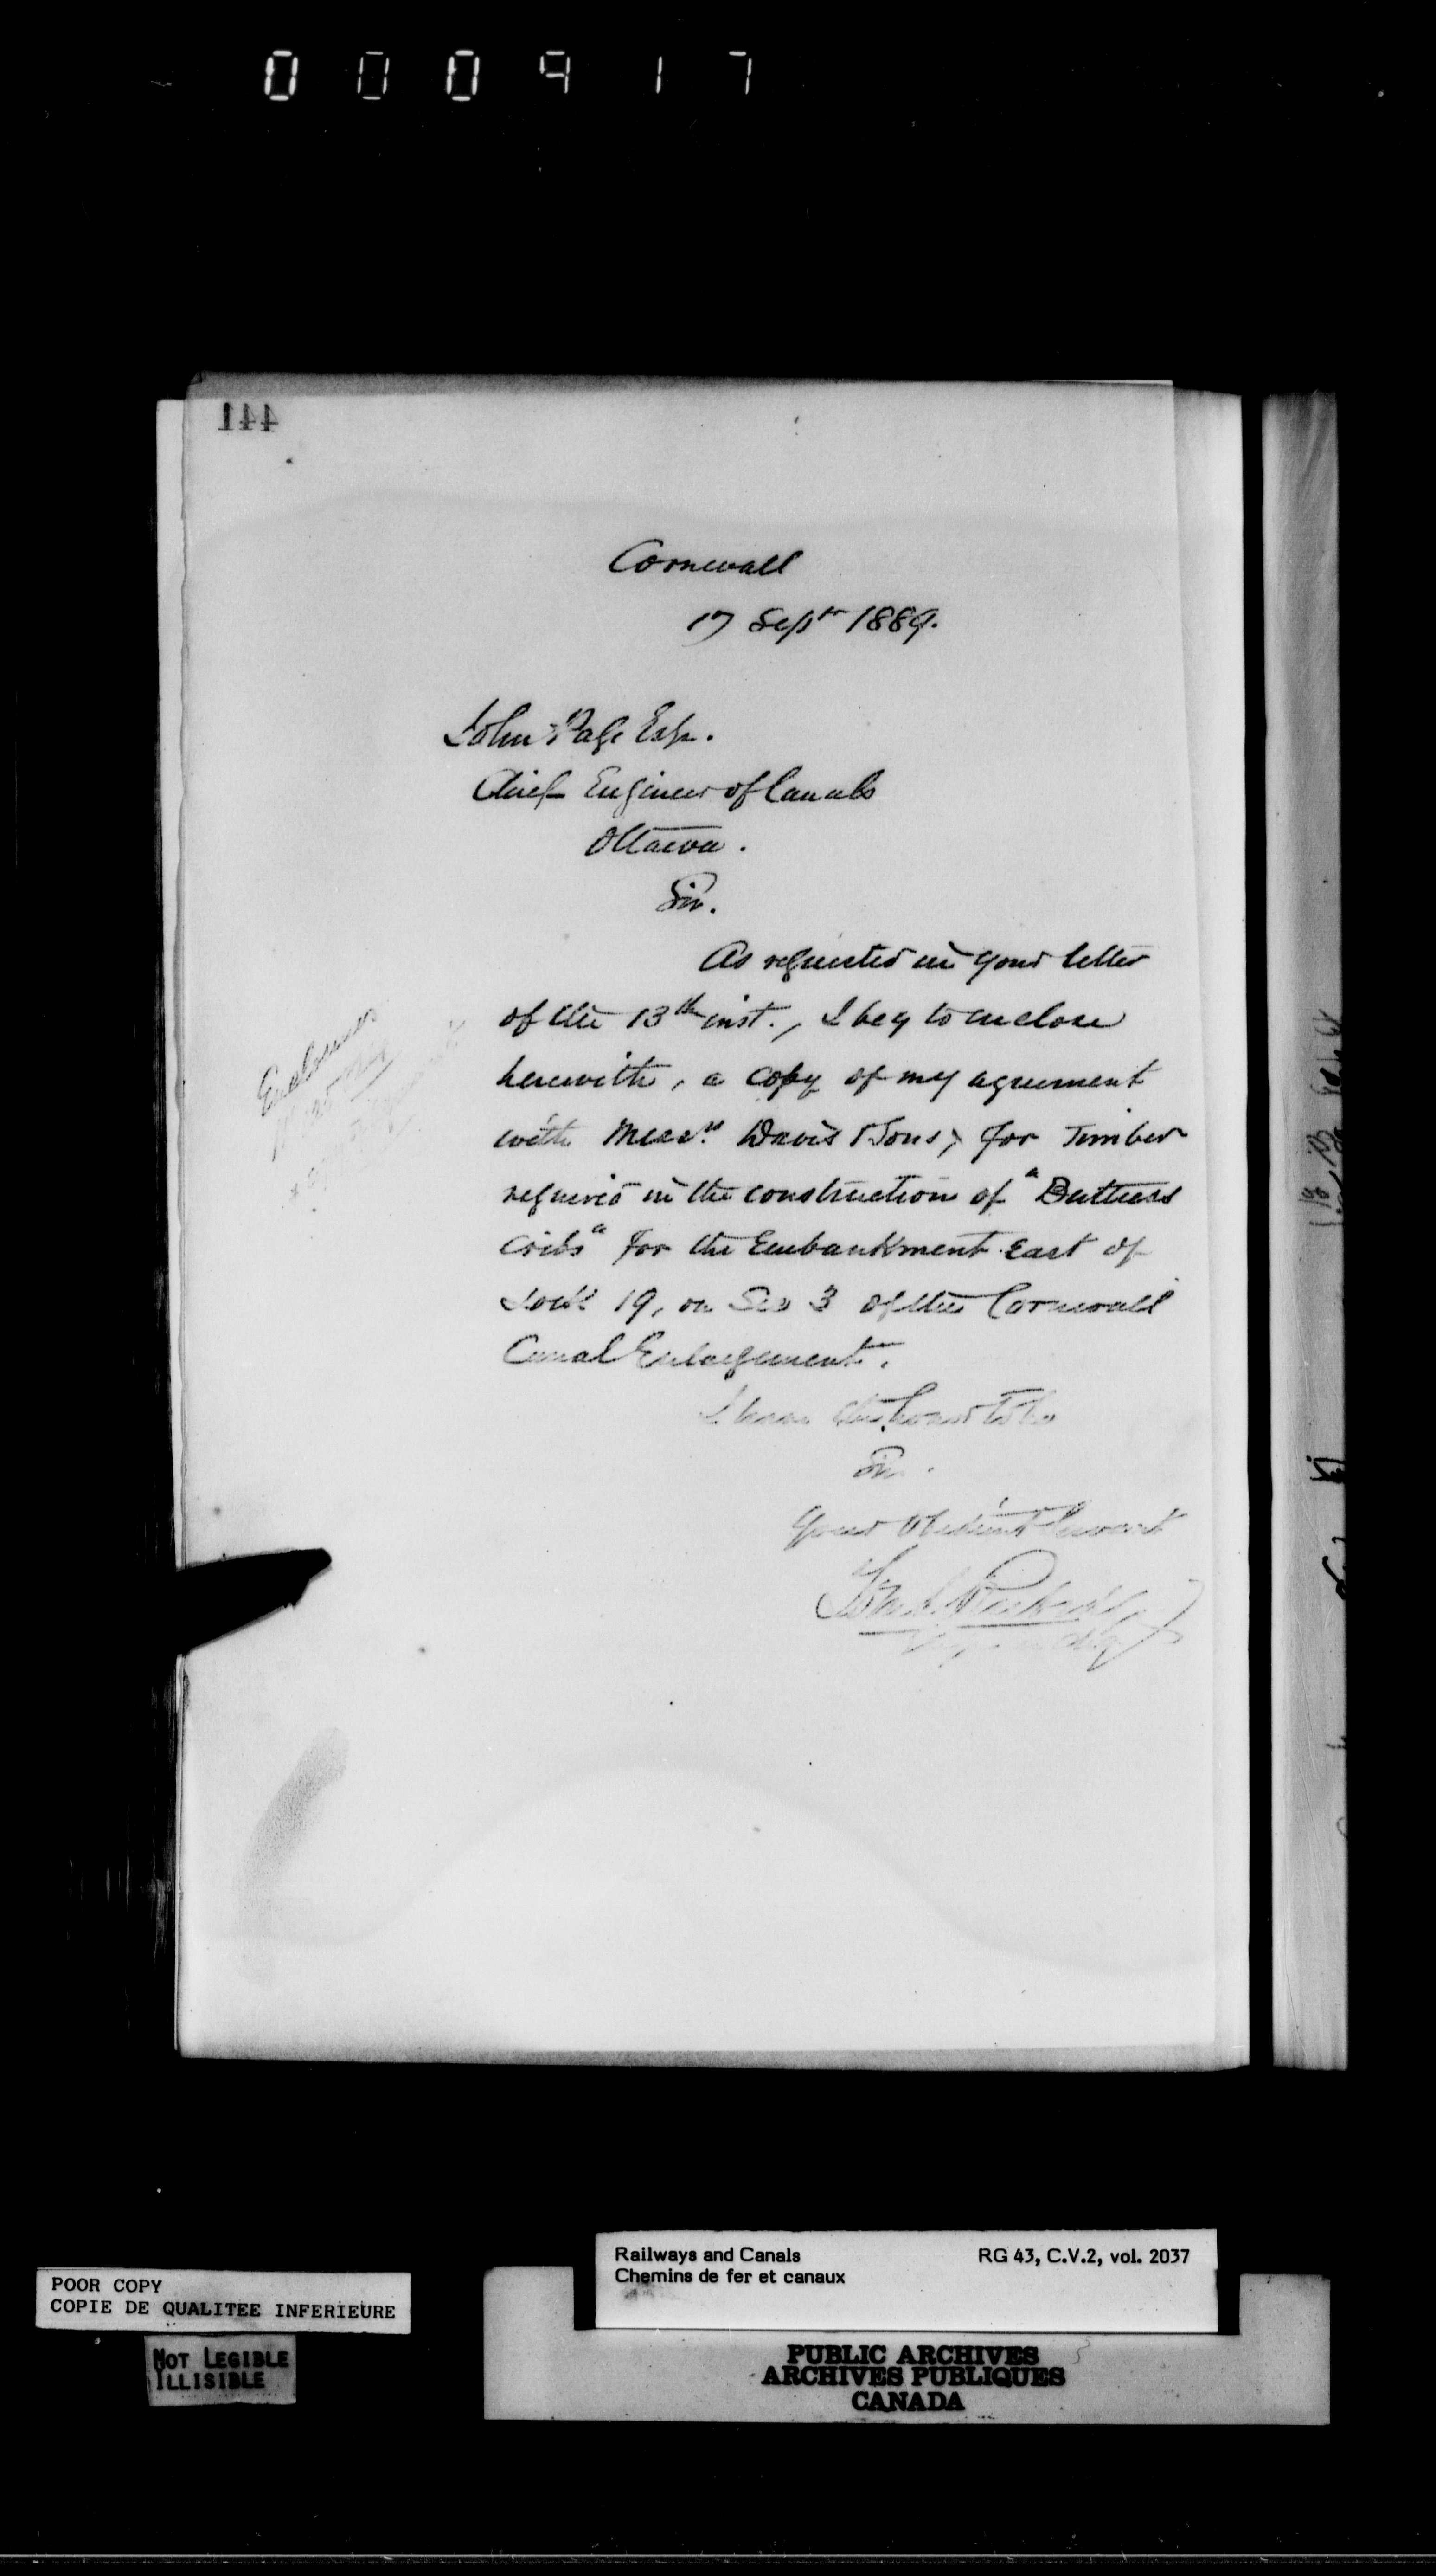 000917
441
Cornwall
17 Septr 1889.
John Page Esq.
Chief Engineer of Canals
Ottawa.
Sir.
As requested in your letter
of the 13th inst., I beg to enclose
herewith, a copy of my agreement
with Messrs. Davis & Sons, for Timber
required in the construction of "Buttress
Cribs" for the Embankment East of
Lock 19, on Sec 3 of the Cornwall
Canal Enlargement.
I have the honor to be
Sir.
Your Obedient Servant
Enclosures
Railways and Canals
Chemins de fer et canaux
RG 43, C.V.2, vol. 2037
POOR COPY
COPIE DE QUALITEE INFERIEURE
NOT LEGIBLE
ILLISIBLE
PUBLIC ARCHIVES
ARCHIVES PUBLIQUES
CANADA